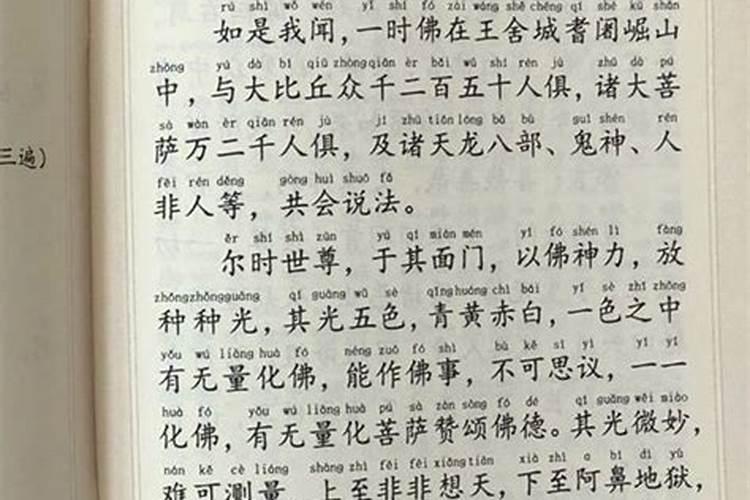 rú shì wǒ wén yī shí fó zài wáng shě chéng qí shé kū shān
如是我闻，一时佛在王舍城耆阇崛山
zhōng yǔ dà bǐ qiū zhòng qiān èr bǎi wǔ shí rén jù zhū dà pú
中，与大比丘众千二百五十人俱，诸大菩
sà wàn èr qiān rén jù jí zhū tiān lóng bā bù guǐ shén rén
萨万二千人俱，及诸天龙八部、鬼神、人
三遍）
fēi rén děng gòng huì shuō fǎ
非人等，共会说法。
ěr shí shì zūn yú qí miàn mén yǐ fó shén lì fàng
尔时世尊，于其面门，以佛神力，放
zhǒng zhǒng guāng qí guāng wǔ sè qīng huáng chì bái yī sè zhī zhōng
种种光，其光五色，青黄赤白，一色之中
yǒu wú liàng huà fó néng zuò fó shì bù kě sī yì yī yī
有无量化佛，能作佛事，不可思议，一一
huà fó yǒu wú liàng huà pú sà zàn sòng fó dé qí guāng wēi miào
化佛，有无量化菩萨赞颂佛德。其光微妙，
nán kě cè liáng shàng zhì fēi fēi xiǎng tiān xià zhì ā bí dì yù
难可测量，上至非非想天，下至阿鼻地狱，